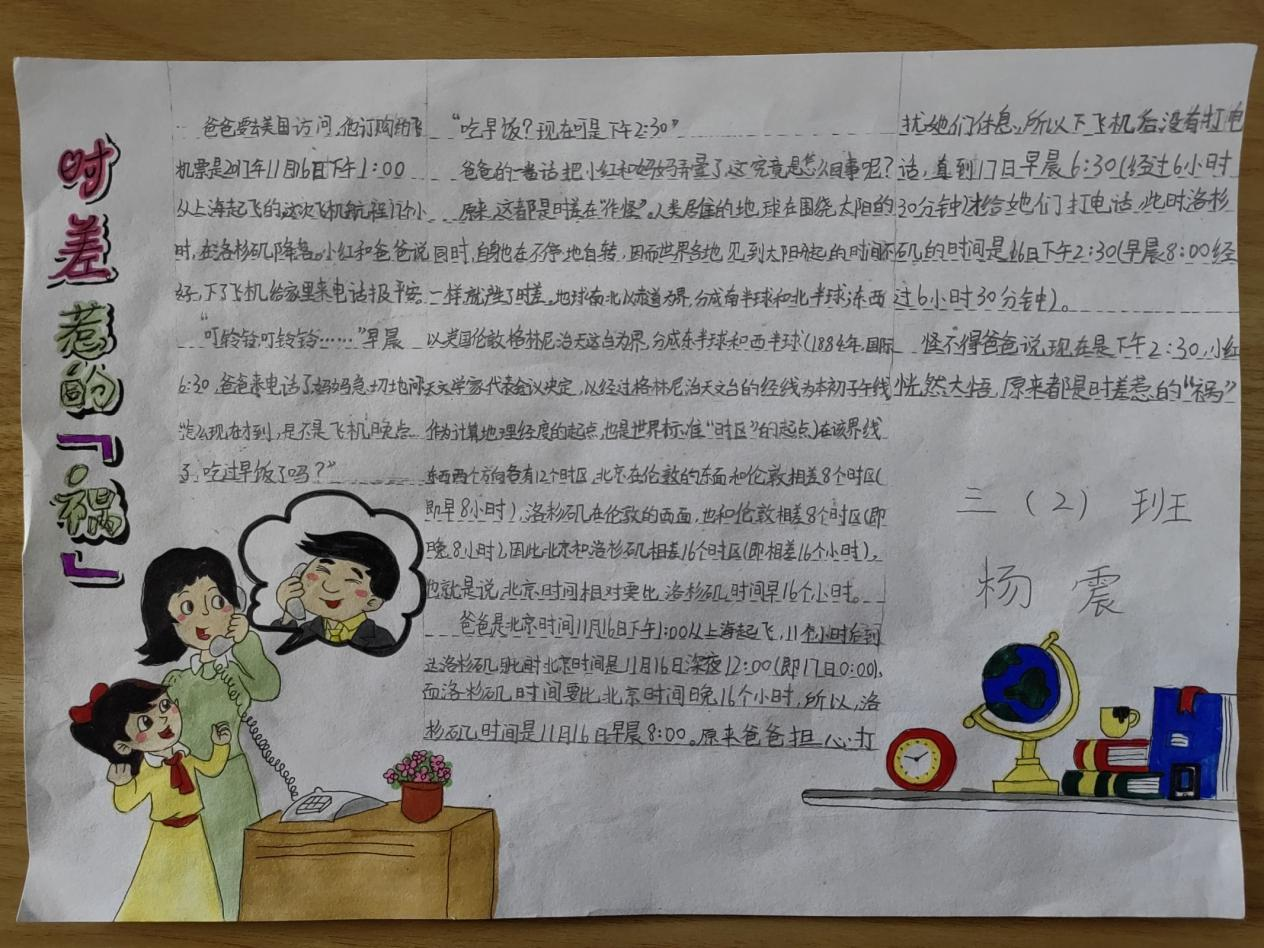 时差惹的『祸』
爸爸要去美国访问,他订购的飞
机票是2017年11月16日下午1:00
从上海起飞的这次飞机航程11个小
时,在洛杉矶降落。小红和爸爸说
好,下了飞机给家里来电话报平安
"叮铃铃,叮铃铃……"早晨
6:30,爸爸来电话了,妈妈急切地问
"怎么现在才到,是不是飞机晚点
了,吃过早饭了吗?"
"吃早饭?现在可是下午2:30"
爸爸的一番话把小红和妈妈弄晕了,这究竟是怎么回事呢?
原来,这都是时差在"作怪"。人类居住的地球在围绕太阳的
同时,自身也在不停地自转,因而世界各地见到太阳升起的时间不
一样就产生了时差。地球南北以赤道为界,分成南半球和北半球;东西
以英国伦敦格林尼治天文台为界,分成东半球和西半球(1884年,国际
天文学家代表会议决定,以经过格林尼治天文台的经线为本初子午线
作为计算地理经度的起点,也是世界标准"时区"的起点)在该界线
东西两个方向各有12个时区,北京在伦敦的东面和伦敦相差8个时区(
即早8小时),洛杉矶在伦敦的西面,也和伦敦相差8个时区(即
晚8小时),因此北京和洛杉矶相差16个时区(即相差16个小时)。
也就是说,北京时间相对要比洛杉矶时间早16个小时。
爸爸是北京时间11月16日下午1:00从上海起飞,11个小时后到
达洛杉矶,此时北京时间是11月16日深夜12:00(即17日0:00),
而洛杉矶时间要比北京时间晚16个小时,所以,洛
杉矶时间是11月16日早晨8:00。原来爸爸担心打
扰她们休息,所以下飞机后没有打电
话,直到17日早晨6:30(经过6小时
30分钟)才给她们打电话,此时洛杉
矶的时间是16日下午2:30(早晨8:00经
过6小时30分钟)。
怪不得爸爸说,现在是下午2:30,小红
恍然大悟,原来都是时差惹的"祸"
三(2)班
杨震